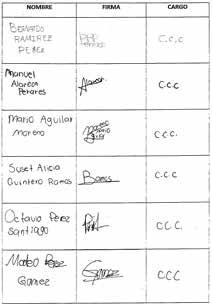 NOMBRE FIRMA CARGO
BERNARDO
RAMIREZ
PEREZ
C.c.c
Manuel
Alarcon
Penares
C.c.c
Mario Aguilar
moreno
C.C.C.
Suset Alicia
Quintero Ramos
Ramos
C.C.C
Octavio Perez
santiago
C C C.
Mateo Perez
Gomez
Gomez
CCC